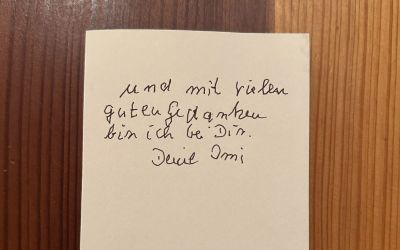 und mit vielen
guten Gedanken
bin ich bei Dir.
Deine Omi